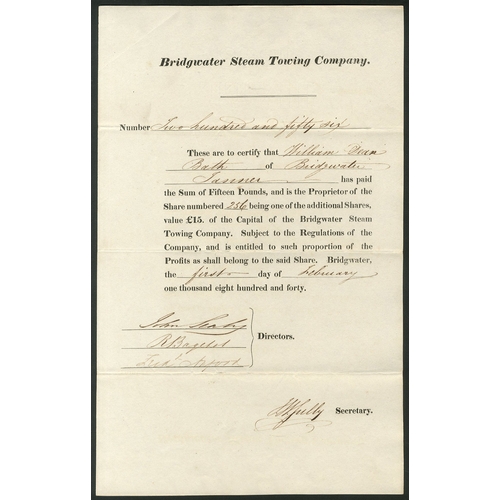 Bridgwater Steam Towing Company.
Number Two hundred and fifty six
These are to certify that William
Bath of Bridgwater
Tanner has paid
the Sum of Fifteen Pounds, and is the Proprietor of the
Share numbered 256 being one of the additional Shares,
value £15. of the Capital of the Bridgwater Steam
Towing Company. Subject to the Regulations of the
Company, and is entitled to such proportion of the
Profits as shall belong to the said Share. Bridgwater,
the first day of February
one thousand eight hundred and forty.
John
Directors.
Secretary.